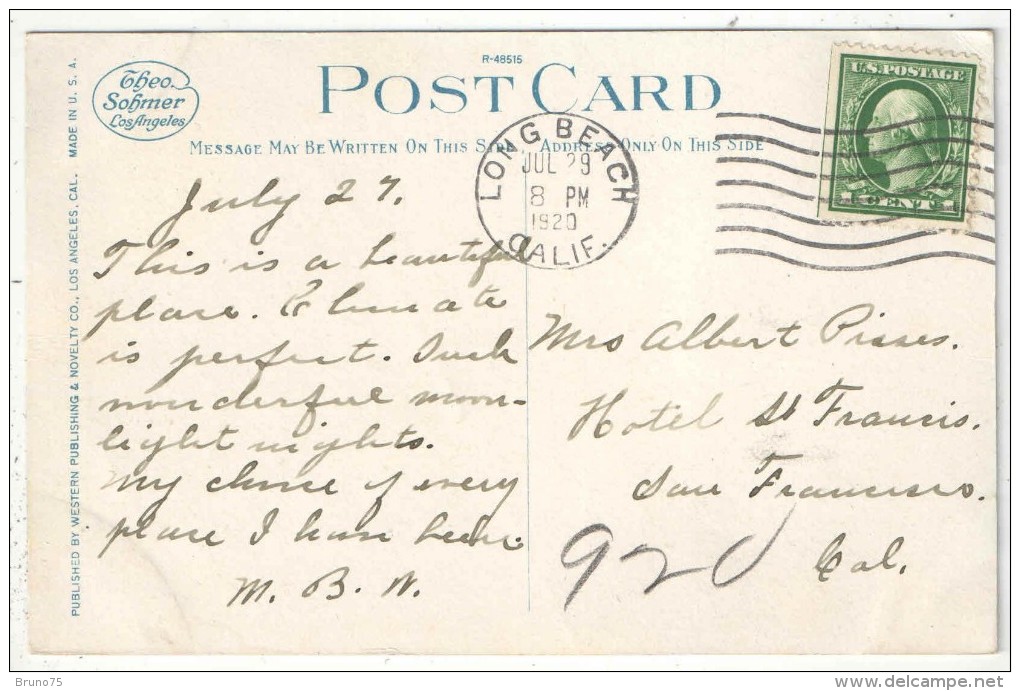 R-48515
POST CARD
Theo.
Sohmer
Los Angeles
MESSAGE MAY BE WRITTEN ON THIS SIDE
ADDRESS ONLY ON THIS SIDE
MADE IN U. S. A.
PUBLISHED BY WESTERN PUBLISHING & NOVELTY CO., LOS ANGELES, CAL.
U.S. POSTAGE
1 CENT 1
LONG BEACH
JUL 29
8 PM
1920
CALIF.
July 27.
This is a beautiful
place. Climate
is perfect. Such
wonderful moon-
light nights.
My choice of every
place I have been.
M. B. W.
Mrs Albert Pisses.
Hotel St Francis.
San Francisco.
Cal.
920
Bruno75
delcampe.net